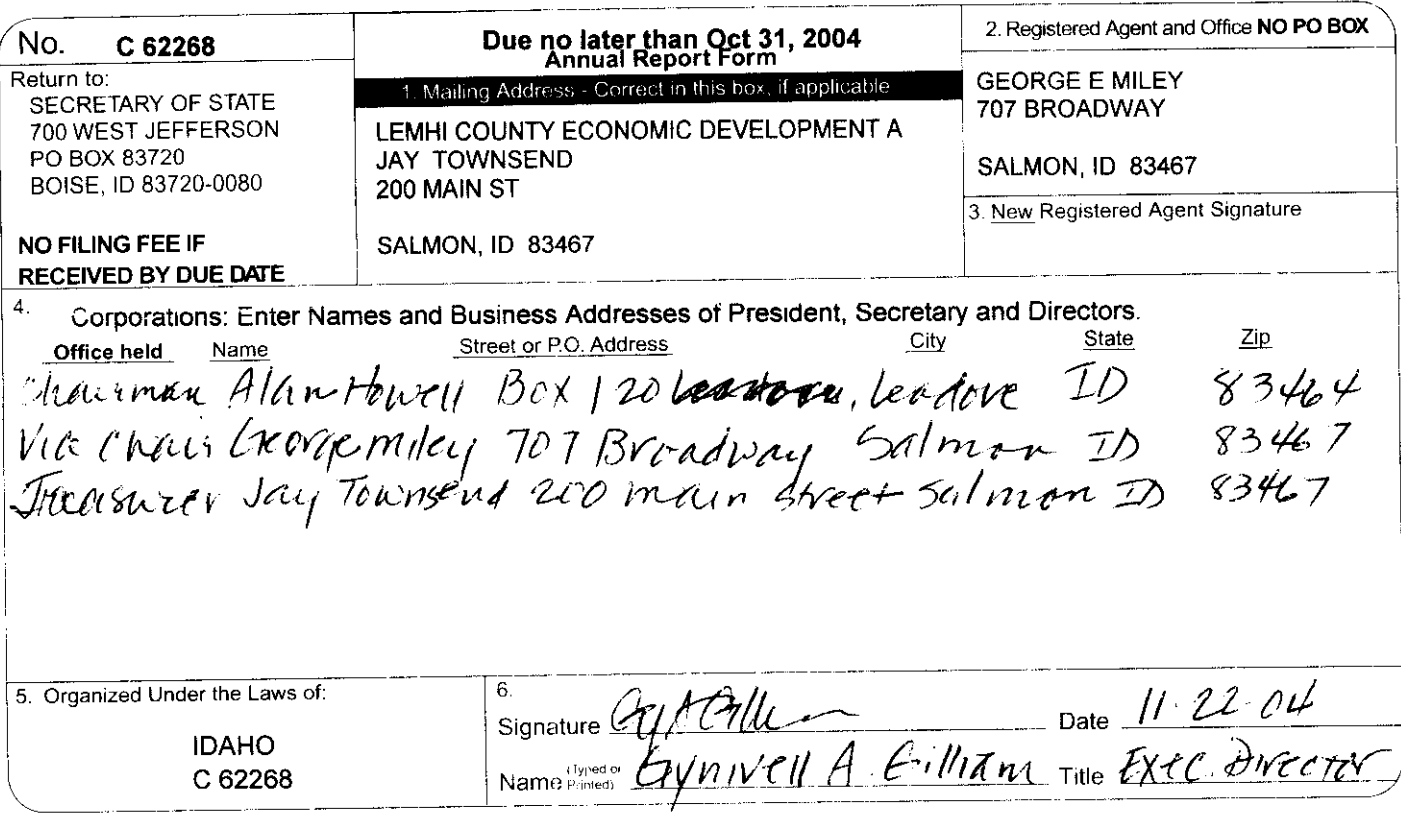 No. C 62268
Return to:
SECRETARY OF STATE
700 WEST JEFFERSON
PO BOX 83720
BOISE, ID 83720-0080
NO FILING FEE IF
RECEIVED BY DUE DATE
Due no later than Oct 31, 2004
Annual Report Form
1. Mailing Address - Correct in this box, if applicable
LEMHI COUNTY ECONOMIC DEVELOPMENT A
JAY TOWNSEND
200 MAIN ST
SALMON, ID 83467
2. Registered Agent and Office NO PO BOX
GEORGE E MILEY
707 BROADWAY
SALMON, ID 83467
3. New Registered Agent Signature
4. Corporations: Enter Names and Business Addresses of President, Secretary and Directors.
Office held Name Street or P.O. Address City State Zip
Chairman Alan Howell Box 120 , Leadore ID 83464
Vice Chair George Miley 707 Broadway Salmon ID 83467
Treasurer Jay Townsend 200 main street Salmon ID 83467
5. Organized Under the Laws of:
IDAHO
C 62268
6.
Signature Date 11-22-04
Name (Typed or Printed) Gynivell A. Gilliam Title Exec. Director